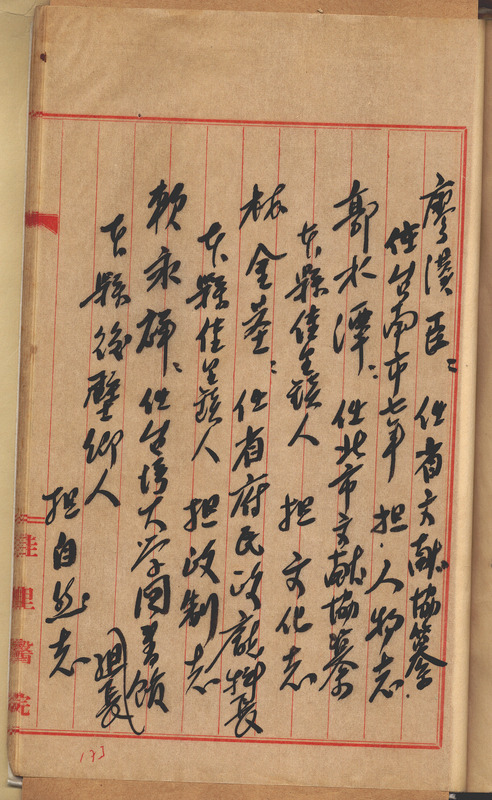 廖漢臣：任省文献協纂
住台南市七年 担．人物志．
郭水潭：任北市文献協纂
本縣佳里鎮人 担 文化志
林金莖：任省府民政廳科長
本縣佳里鎮人 担政制志
賴永碑：任台湾大学図書館
組長
本縣後壁鄉人
担自然志
佳里醫院
133